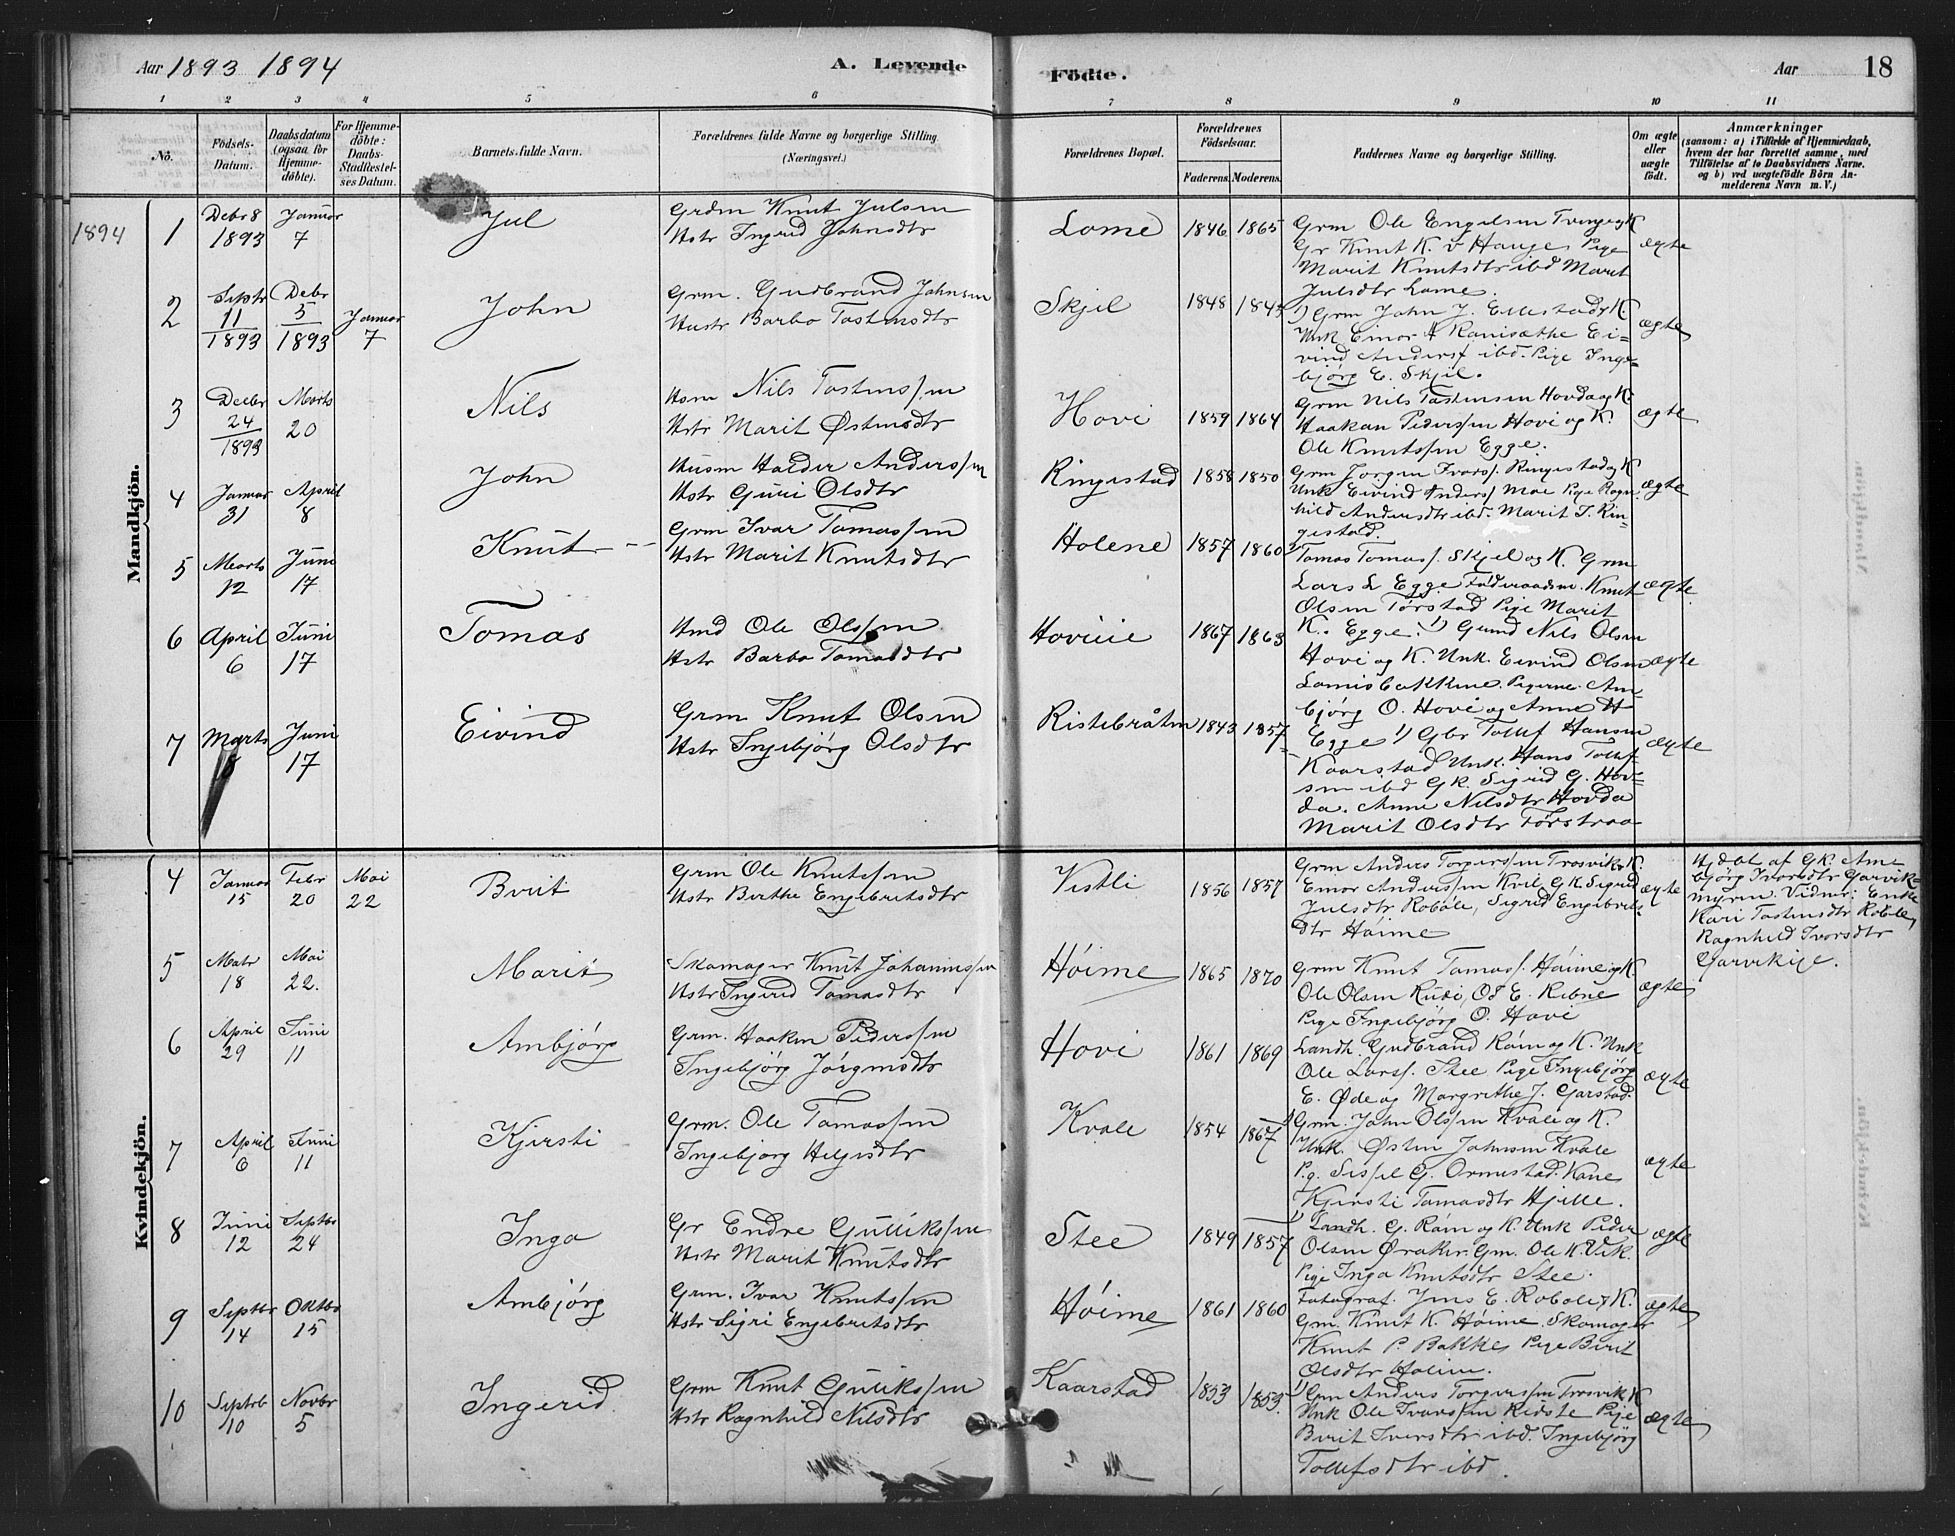 Aar 1893 1894 A. Levende Fødte. Aar 18
1 2 3 4 5 6 7 8 9 10 11
No. Födsels-Datum. Daabsdatum (ogsaa for Hjemme-döbte). For Hjemme-döbte: Daabs-Stadfestel-ses Datum. Barnets fulde Navn. Forældrenes fulde Navne og borgerlige Stilling. (Næringsvei.) Forældrenes Bopæl. Forældrenes Födselsaar. Faderens. Moderens. Faddernes Navne og borgerlige Stilling. Om ægte eller uægte födt. Anmærkninger (saasom: a) i Tilfælde af Hjemmedaab, hvem der har forrettet samme, med Tilføielse af to Daabsvidners Navne. og b) ved uægtefödte Börn An-melderens Navn m. V.)
Mandkjön.
1894 1 Debr 8 1893 Januar 7 Jul
Grdm Knut Julsen
Hstr Ingrid Johnsdtr
Lome 1846 1865
Grm Ole Engelsen Tvenge og K
Gr Knut K. v Hauge, Pige
Marit Knutsdtr ibd Marit
Julsdtr Lome.
ægte
2 Septr 11 1893 Debr 5 1893 Januar 7 John
Grm. Gudbrand Johnsen
Hustr Barbo Tostensdtr
Skjel 1848 1843
1) Grm John J. Ellestad og K.
Unk Einor A Ranisæthe Ei-
vind Anders/ ibd. Pige Inge-
björg E. Skjel.
ægte
3 Decbr 24 1893 Marts 20 Nils
Hsm Nils Tostens/en
Hstr Marit Østensdtr
Hovi 1859 1864
Grm Nils Tostensen Hovda og K.
Haakan Peders/en Hovi og K.
Ole Knuts/en Egge.
ægte
4 Januar 31 April 8 John
Husm Haldor Anders/en
Hstr Guri Olsdtr
Ringestad 1858 1850
Grm Jorgen Ivars/. Ringestad og K
Unk Eivind Anders/ Moe Pige Ragn-
hild Andersdtr ibd. Marit J. Rin-
gestad.
ægte
5 Marts 12 Juni 17 Knut
Grm Ivar Tomas/en
Hstr Marit Knutsdtr
Holene 1857 1860
Tomas Tomas/. Skjel og K. Grm
Lars L Egge Föderaadsm. Knut
Olsen Tørstad Pige Marit
K. Egge.
ægte
6 April 6 Juni 17 Tomas
Hmd Ole Ols/en
Hstr Barbo Tomasdtr
Hovieie 1867 1863
1) Gmd Nils Olsen
Hovi og K. Unk. Eivind Olsen
Lomisbakkene. Pigerne. Am-
björg O. Hovi og Anne H
Egge
ægte
7 Marts 8 Juni 17 Eivind
Grm Knut Olsen
Hstr Ingebjörg Olsdtr
Ristebråten 1843 1857
1) Gbr Tollef Hansen
Kaarstad Unk. Hans Tollef-
sen ibd GK. Sigrid G. Hov-
da. Anne Nilsdtr Hovda
Marit Olsdtr Förstraa
ægte
Kvindekjön.
4 Januar 15 Febr 20 Mai 22 Birit
Grm Ole Knuts/en
Hstr Birthe Engebretsdtr
Vestli 1856 1857
Grm Anders Torgers/en Trosvik & K
Einor Anders/en Kvil GK Sigrid
Julsdtr Robøle, Sigrid Engebrets-
dtr Höime
ægte
Hjdøbt af GK. Am-
björg Ivarsdtr Garvik-
myren. Vidner: Enke
Kari Tostensdtr Robøle,
Ragnhild Ivarsdtr
Garvikeie.
5 18 Mai 22. Marit
Skomager Knut Johannes/en
Hstr Ingerid Tomasdtr
Høime 1865 1870
Grm Knut Tomas/. Høime og K
Ole Olsen Rudi, Ol E. Ribne
Pige Ingebjörg O. Hovi
ægte
6 April 29 Juni 11 Ambjörg
Grm. Haaken Peders/en
Ingebjörg Jörgensdtr
Hovi 1861 1869
Landh. Gudbrand Röm og K. Unk
Ole Lars/. Stee Pige Ingebjörg
E. Øde og Margrethe J. Garstad.
ægte
7 April 6 Juni 11 Kjersti
Grm. Ole Tomas/en
Ingebjörg Helgesdtr
Kvale 1854 1867
Grm. John Ols/en Kvale og K.
Unk. Østen Johnsen Kvale
Pg. Sis/el G. Ormestad. Kone
Kjersti Tomasdtr Hjelle.
ægte
8 Juni 12 Septbr 24 Inga
Gr Endre Gulliks/en
Hstr Marit Knutsdtr
Stee 1849 1857
1) Landh. G. Röm og K. Unk Peder
Olsen Øraker. Gm. Ole K. Vik.
Pige Inga Knutsdtr Stee.
ægte
9 Septbr 14 Oktbr 15 Ambjörg
Grm. Ivar Knuts/en
Hstr Sigri Engebretsdtr
Høime 1861 1860
Fotograf. Jens E. Robøle og K.
Gm. Knut K. Høime. Skomager
Knut P. Bakke, Pige Birit
Olsdtr
ægte
10 Septrb 10 Novbr 5 Ingerid
Grm Knut Gulliks/en
Hstr Ragnhild Nilsdtr
Kaarstad 1853 1853.
1) Grm Anders Torgers/en Trosvik K
Unk Ole Ivars/en Ridste Pige
Birit Iversdtr ibd. Ingebjörg
Tollefsdtr ibd.
ægte